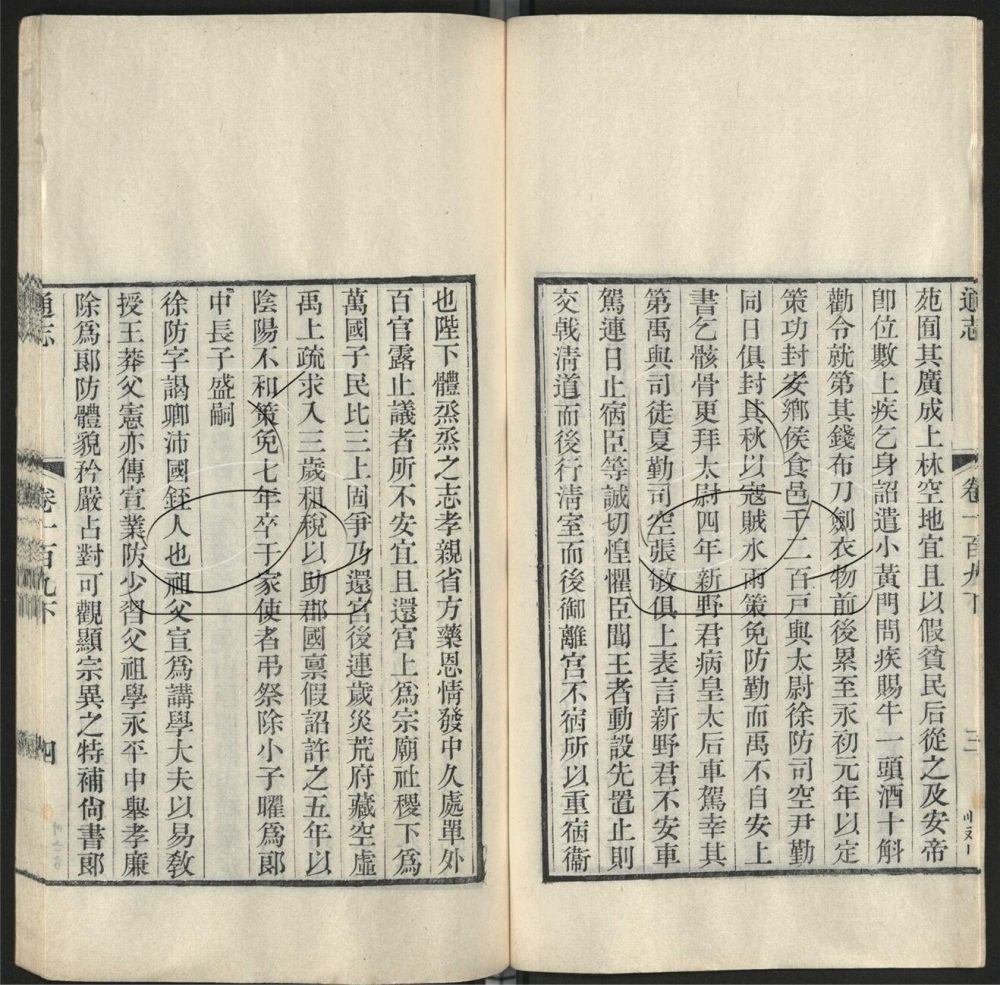 通志
卷一百九下
三
苑囿其廣成上林空地宜且以假貧民后從之及安帝
卽位數上疾乞身詔遣小黃門問疾賜牛一頭酒十斛
勸令就第其錢布刀劍衣物前後累至永初元年以定
策功封安鄉侯食邑千二百戸與太尉徐防司空尹勤
同日俱封其秋以寇賊水雨策免防勤而禹不自安上
書乞骸骨更拜太尉四年新野君病皇太后車駕幸其
第禹與司徒夏勤司空張敏俱上表言新野君不安車
駕連日止宿臣等誠切惶懼臣聞王者動設先置止則
交戟淸道而後行淸室而後御離宮不宿所以重宿衞
也陛下體烝烝之志孝親省方藥恩情發中久處單外
百官露止議者所不安宜且還宮上爲宗廟社稷下爲
萬國子民比三上固爭乃還宮後連歲災荒府藏空虛
禹上疏求入三歲租稅以助郡國稟假詔許之五年以
陰陽不和策免七年卒于家使者弔祭除小子曜爲郞
中長子盛嗣
徐防字謁卿沛國銍人也祖父宣爲講學大夫以易敎
授王莽父憲亦傳宣業防少習父祖學永平中舉孝廉
除爲郞防體貌矜嚴占對可觀顯宗異之特補尙書郞
通志
卷一百九下
四